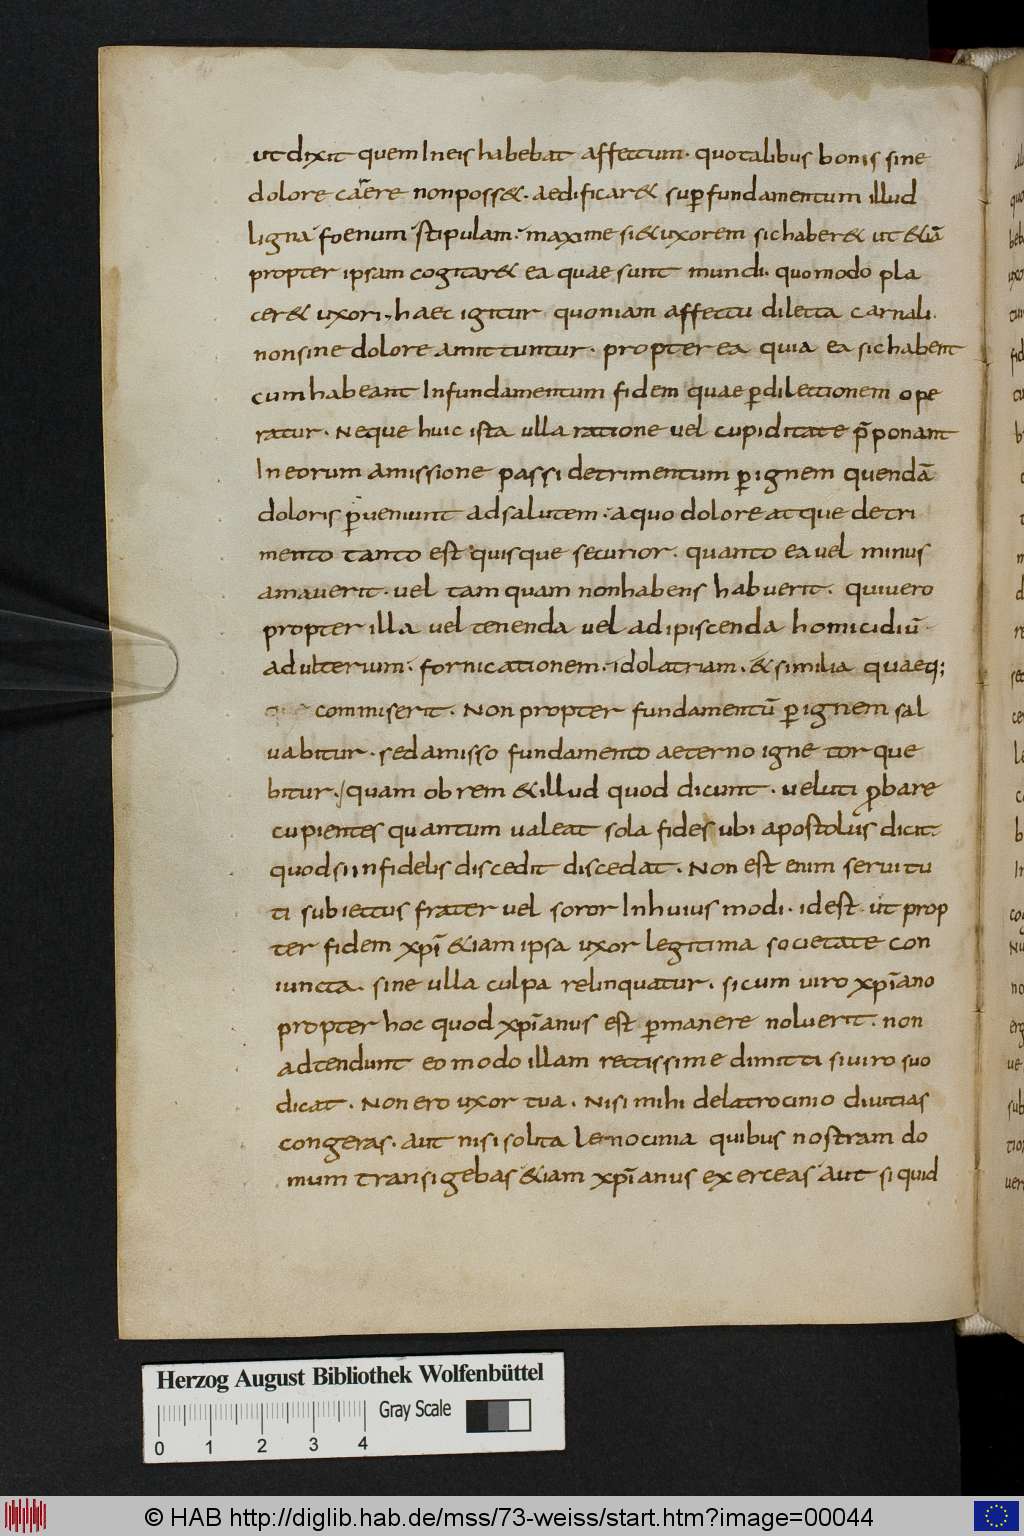 ut dixit quem In eis habebat affectum · quo talibus bonis sine
dolore cārere non poss& · aedificar& suꝑ fundamentum illud
ligna foenum stipulam · maxime si & uxorem sic haber& ut &iā
propter ipsam cogitar& ea quae sunt mundi · quomodo pla
cer& uxori · haec igitur quoniam affectu dilecta carnali ·
non sine dolore amittuntur · propterea quia ea sic habent
cum habeant In fundamentum fidem quae ꝑ dilectionem ope
ratur · Neque huic ista ulla ratione uel cupiditate p̄ponant
In eorum amissione passi detrimentum ꝑ ignem quendā
doloris ꝑueniunt ad salutem · a quo dolore atque detri
mento tanto est quisque securior · quanto ea uel minus
amauerit · uel tamquam non habens habuerit · qui uero
propter illa uel tenenda uel adipiscenda homicidiū ·
adulterium · fornicationem · idolatriam · & similia quaeq;
commiserit · Non propter fundamentū ꝑ ignem sal
uabitur · sed amisso fundamento aeterno igne torque
bitur · / quam ob rem & illud quod dicunt · ueluti ꝓbare
cupientes quantum ualeat sola fides ubi apostolus dicit ·
quod si infidelis discedit discedat · Non est enim seruitu
ti subiectus frater uel soror In huius modi · id est · ut prop
ter fidem xp̄i &iam ipsa uxor legitima societate con
iuncta · sine ulla culpa relinquatur · si cum uiro xp̄iano
propter hoc quod xp̄ianus est ꝑmanere noluerit · non
adtendunt eo modo illam rectissime dimitti si uiro suo
dicat · Non ero uxor tua · Nisi mihi de latrocinio diuitias
congeras · aut nisi solita lenocinia quibus nostram do
mum transigebas &iam xp̄ianus exerceas aut si quid
Herzog August Bibliothek Wolfenbüttel
Gray Scale
0 1 2 3 4
© HAB http://diglib.hab.de/mss/73-weiss/start.htm?image=00044